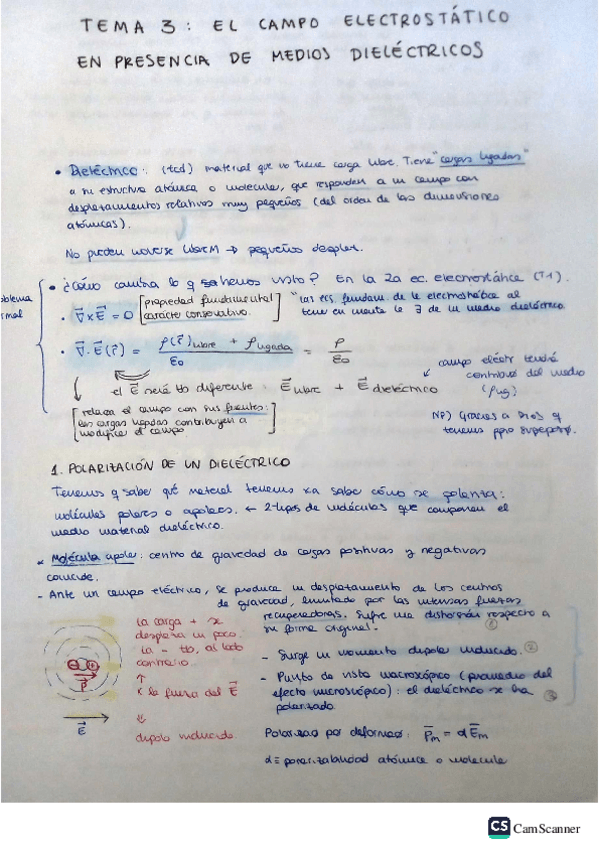 TEMA 3: EL CAMPO ELECTROSTÁTICO
EN PRESENCIA DE MEDIOS DIELÉCTRICOS
• Dieléctrico: (tcd) material que no tiene carga libre. Tiene "cargas ligadas"
a su estructura atómica o molecular, que responden a un campo con
desplazamientos relativos muy pequeños (del orden de las dimensiones
atómicas).
No pueden moverse librem → pequeños desplaz.
• ¿Cómo cambia lo q sabemos visto? En la 2a ec. electrostática (T1).
• ∇×E = 0 [propiedad fundamental carácter conservativo.
"las ecs. fundam. de la electrostática al
tener en cuenta la ∃ de un medio dieléctrico.
• ∇·E(r) = ρ(r) libre + ρ ligada / ε0 = ρ / ε0
el E será tb diferente: E libre + E dieléctrico
campo eléctr tendrá
contribuc del medio
(ρ lig)
[relaciona el campo con sus fuentes:
las cargas ligadas contribuyen a
modificar el campo]
NP) Gracias a Dios q
tenemos ppio superpos.
1. POLARIZACIÓN DE UN DIELÉCTRICO
Tenemos q saber qué material tenemos xa saber cómo se polariza:
moléculas polares o apolares. ← 2 tipos de moléculas que componen el
medio material dieléctrico.
* Molécula apolar: centro de gravedad de cargas positivas y negativas
coincide.
- Ante un campo eléctrico, se produce un desplazamiento de los centros
de gravedad, limitado por las intensas fuerzas
recuperadoras. Sufre una distorsión respecto a
su forma original. ①
- Surge un momento dipolar inducido. ②
- Punto de vista macroscópico (promedio del
efecto microscópico): el dieléctrico se ha
polarizado. ③
Polarizac por deformac: Pm = αEm
α = polarizabilidad atómica o molecular
la carga + se
desplaza un poco.
la - tb, al lado
contrario
↑
x la fuerza del E
⇓
dipolo inducido.
P
E
CS CamScanner